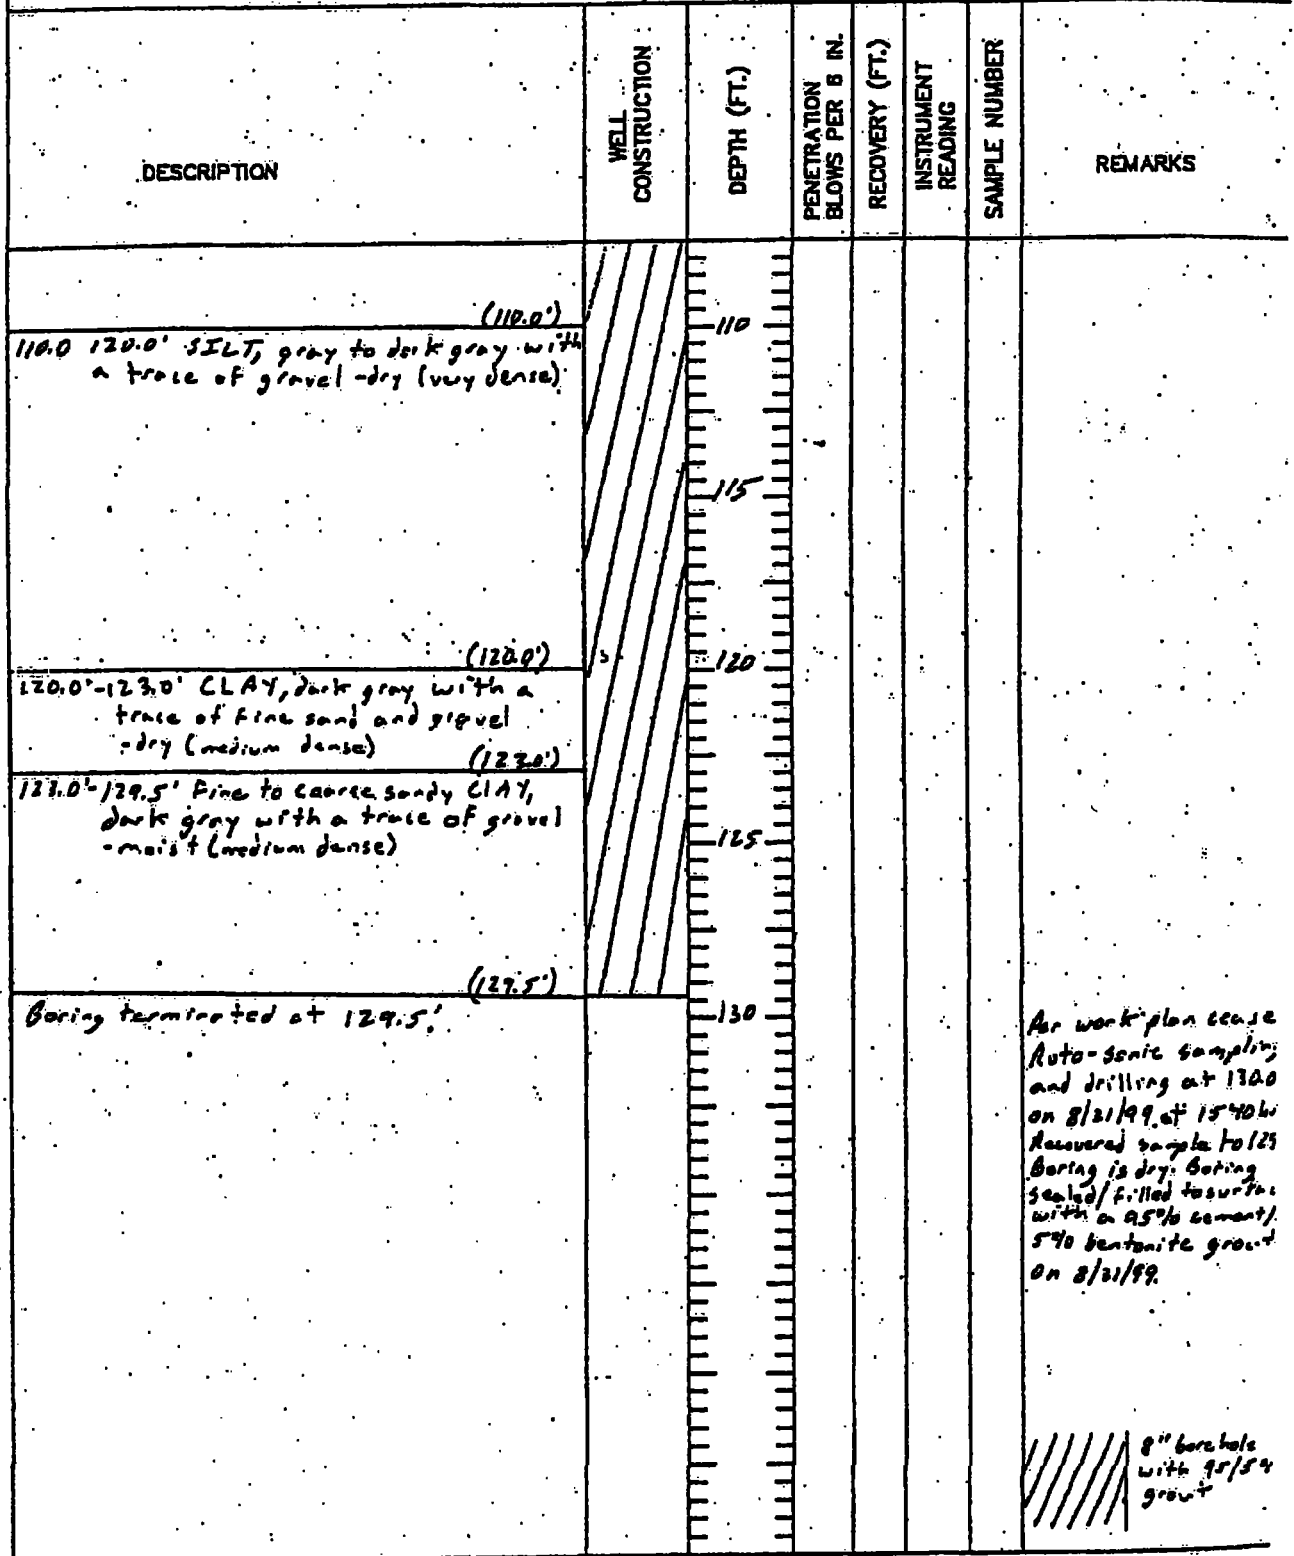 DESCRIPTION
WELL
CONSTRUCTION
DEPTH (FT.)
PENETRATION
BLOWS PER 6 IN.
RECOVERY (FT.)
INSTRUMENT
READING
SAMPLE NUMBER
REMARKS
(110.0')
110.0 120.0' SILT, gray to dark gray with
a trace of gravel -dry (very dense)
(120.0')
120.0'-123.0' CLAY, dark gray with a
trace of fine sand and gravel
-dry (medium dense)
(123.0')
123.0'-129.5' Fine to coarse sandy CLAY,
dark gray with a trace of gravel
-moist (medium dense)
(129.5')
Boring terminated at 129.5'.
110
115
120
125
130
Per work plan cease
Auto-sonic sampling
and drilling at 130.0
on 8/21/99 at 1540 h
Recovered sample to 129
Boring is dry. Boring
sealed/filled to surfac
with a 95% cement/
5% bentonite grout
on 8/21/99.
8" borehole
with 95/5%
grout